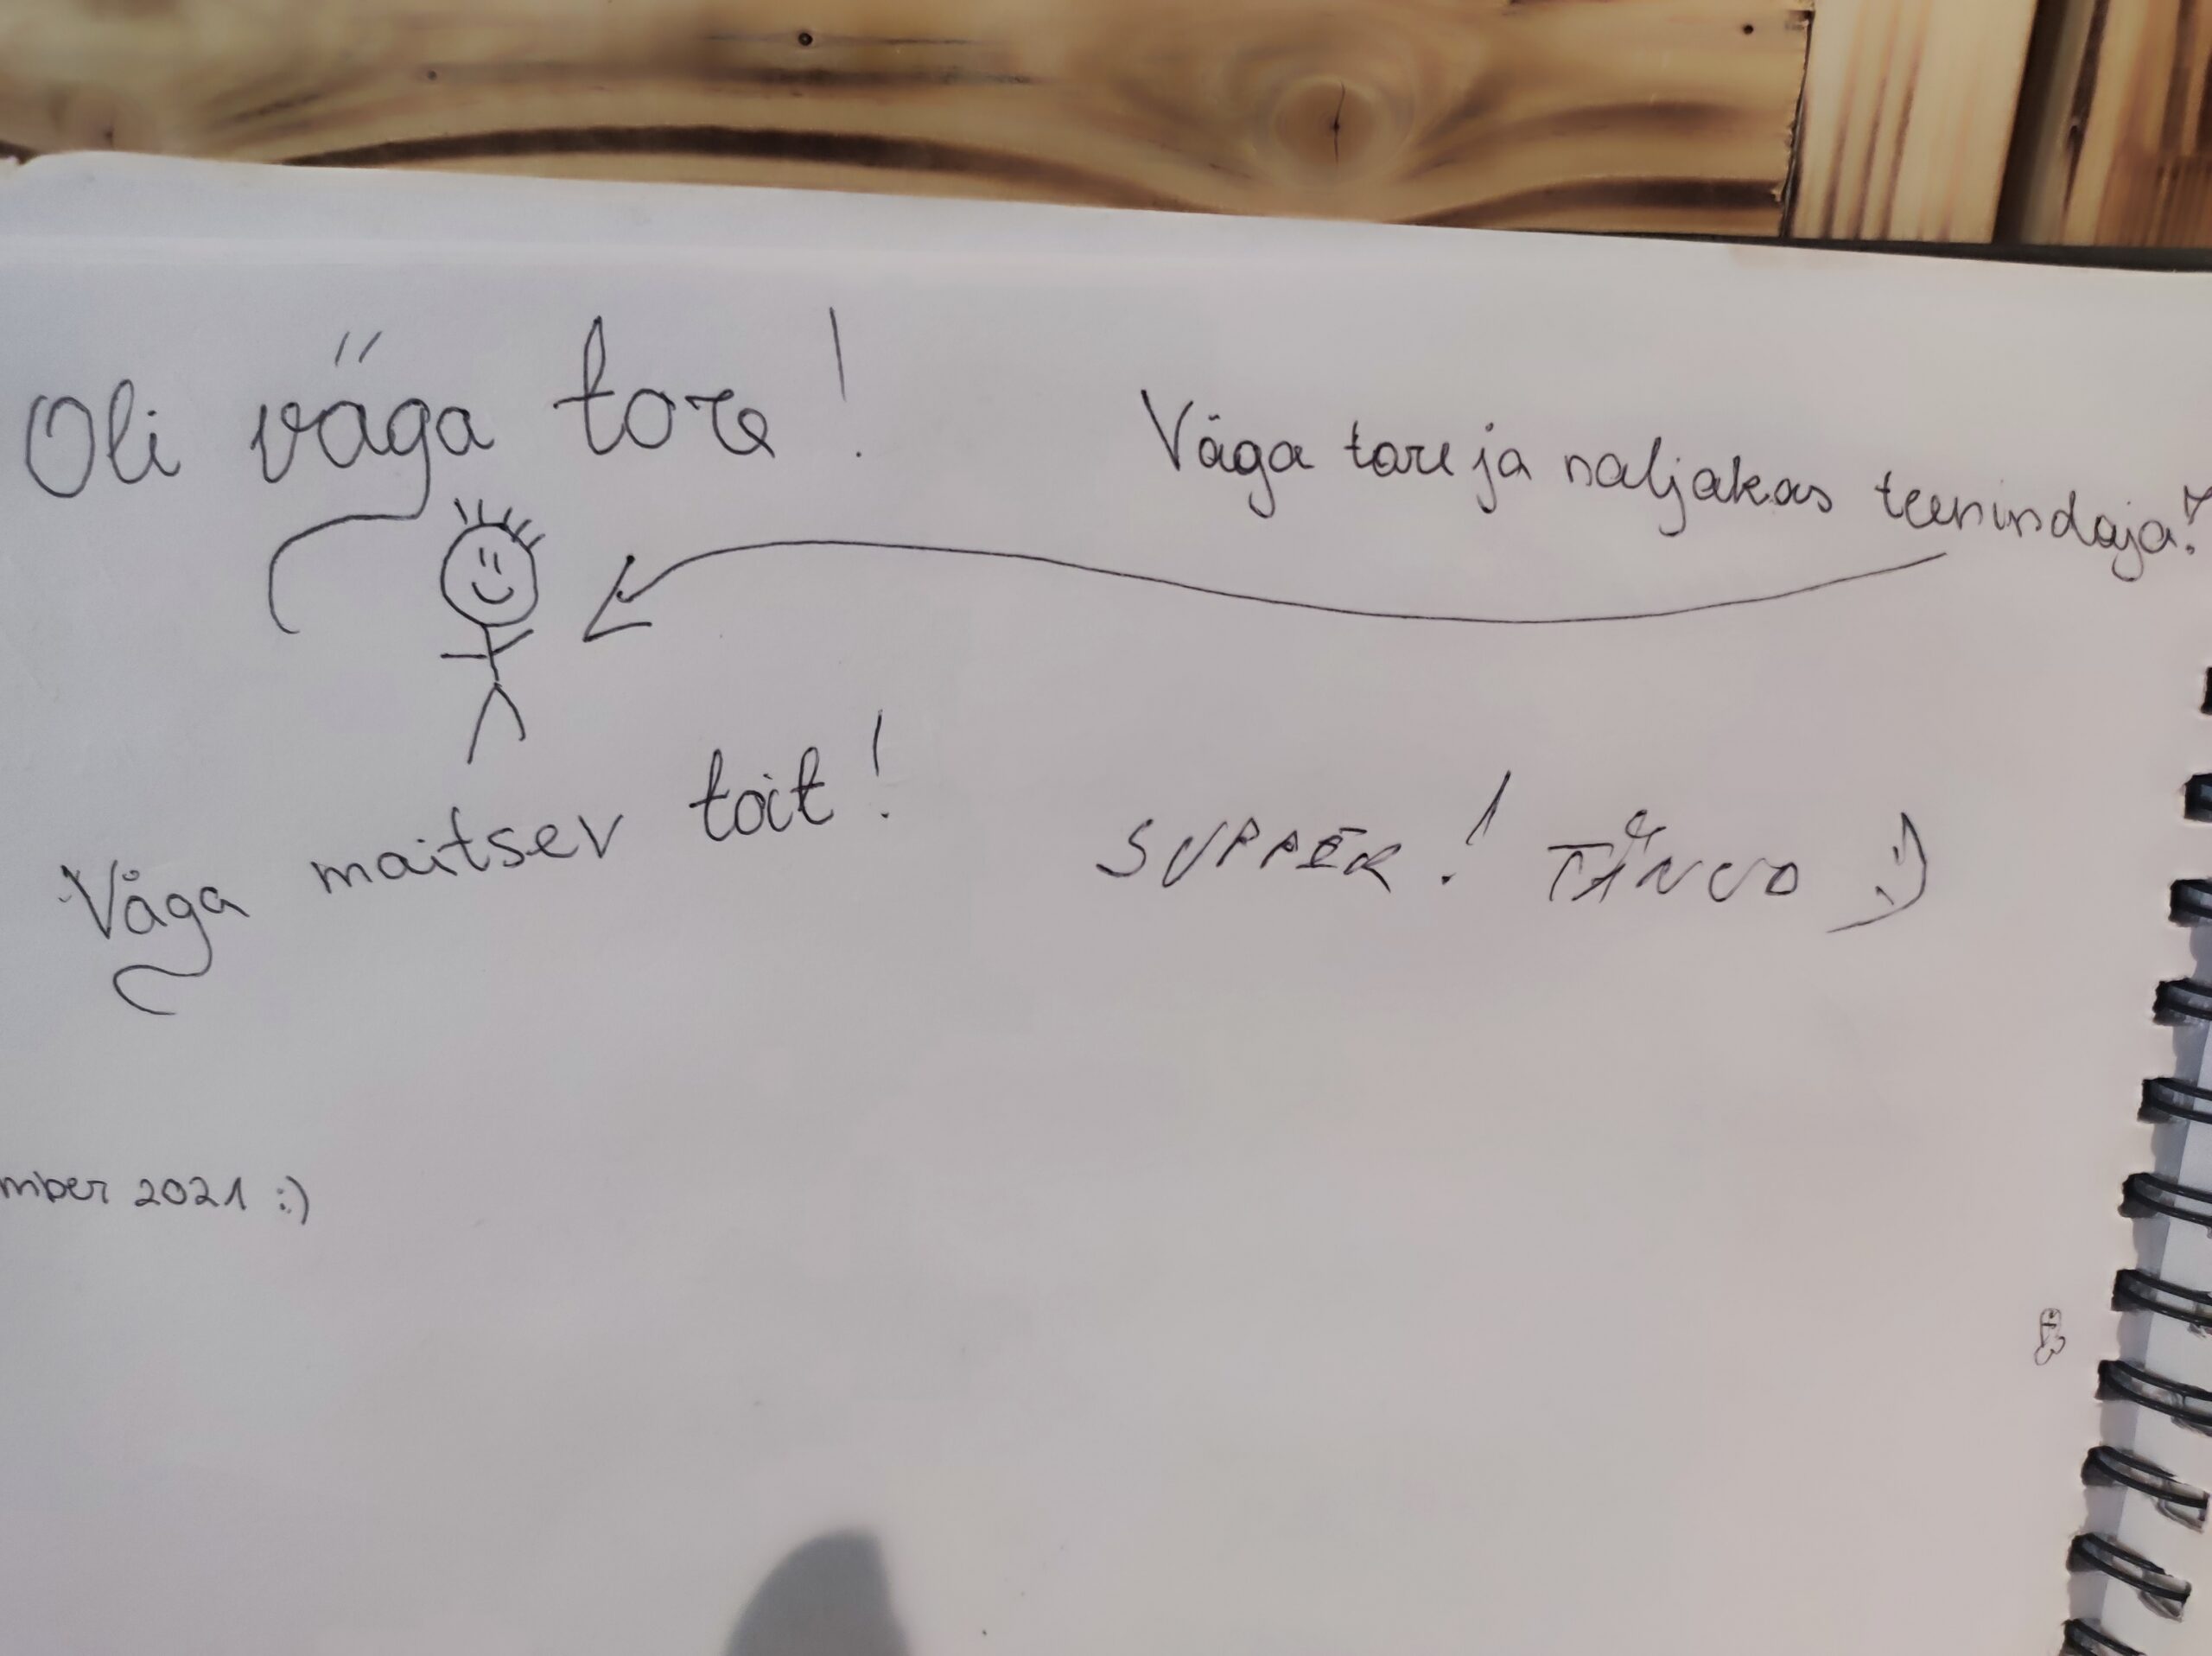 Oli väga tore!
Väga tore ja naljakas teenindaja!
Väga maitsev toit!
SUPPER! TÄNUD :)
mber 2021 :)